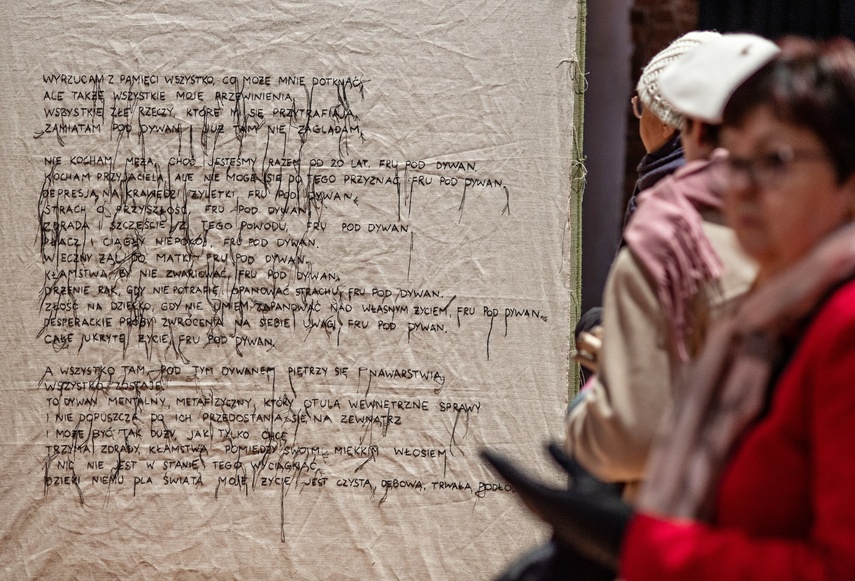 WYRZUCAM Z PAMIĘCI WSZYSTKO, CO MOŻE MNIE DOTKNĄĆ,
ALE TAKŻE WSZYSTKIE MOJE PRZEWINIENIA,
WSZYSTKIE ZŁE RZECZY, KTÓRE MI SIĘ PRZYTRAFIAJĄ,
ZAMIATAM POD DYWAN I JUŻ TAM NIE ZAGLĄDAM.
NIE KOCHAM MĘŻA, CHOĆ JESTEŚMY RAZEM OD 20 LAT, FRU POD DYWAN.
KOCHAM PRZYJACIELA, ALE NIE MOGĘ SIĘ DO TEGO PRZYZNAĆ, FRU POD DYWAN.
DEPRESJA NA KRAWĘDZI ŻYLETKI, FRU POD DYWAN.
STRACH O PRZYSZŁOŚĆ, FRU POD DYWAN.
ZDRADA I SZCZĘŚCIE Z TEGO POWODU, FRU POD DYWAN.
PŁACZ I CIĄGŁY NIEPOKÓJ, FRU POD DYWAN.
WIECZNY ŻAL DO MATKI, FRU POD DYWAN.
KŁAMSTWA, BY NIE ZWARIOWAĆ, FRU POD DYWAN.
DRŻENIE RĄK, GDY NIE POTRAFIĘ OPANOWAĆ STRACHU, FRU POD DYWAN.
ZŁOŚĆ NA DZIECKO, GDY NIE UMIEM ZAPANOWAĆ NAD WŁASNYM ŻYCIEM, FRU POD DYWAN.
DESPERACKIE PRÓBY ZWRÓCENIA NA SIEBIE UWAGI, FRU POD DYWAN.
CAŁE UKRYTE ŻYCIE, FRU POD DYWAN.
A WSZYSTKO TAM, POD TYM DYWANEM PIĘTRZY SIĘ I NAWARSTWIA,
WSZYSTKO ZOSTAJE.
TO DYWAN MENTALNY, METAFIZYCZNY, KTÓRY OTULA WEWNĘTRZNE SPRAWY
I NIE DOPUSZCZA DO ICH PRZEDOSTANIA SIĘ NA ZEWNĄTRZ
I MOŻE BYĆ TAK DUŻY, JAK TYLKO CHCĘ
TRZYMA ZDRADY, KŁAMSTWA POMIĘDZY SWOIM MIĘKKIM WŁOSIEM
I NIC NIE JEST W STANIE TEGO WYCIĄGNĄĆ.
DZIĘKI NIEMU DLA ŚWIATA MOJE ŻYCIE JEST CZYSTĄ, DĘBOWĄ, TRWAŁĄ